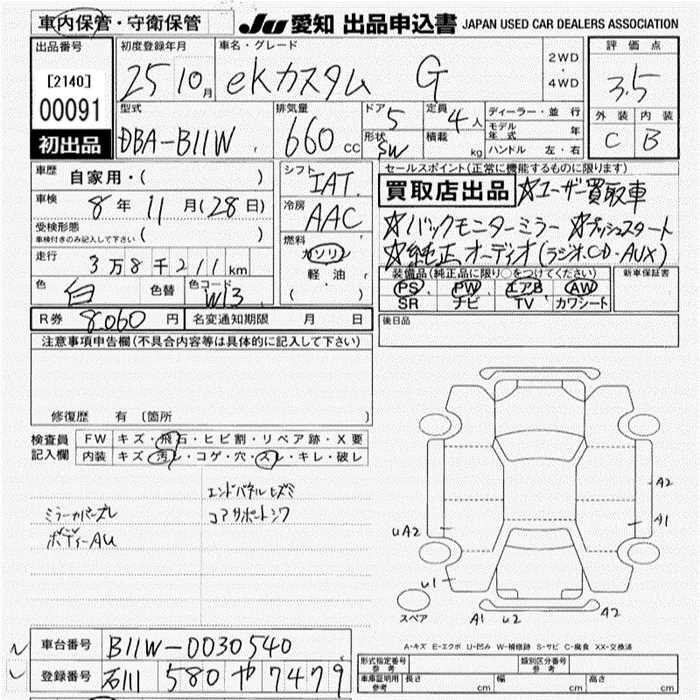 車内保管・守衛保管
JU 愛知 出品申込書 JAPAN USED CAR DEALERS ASSOCIATION
出品番号
[2140]
00091
初出品
初度登録年月
25 10月
車名・グレード
ekカスタム G
2WD
・
4WD
評価点
3.5
外装 内装
C B
型式
DBA-B11W
排気量
660 cc
ドア
5
形状
SW
定員
4人
積載
kg
ディーラー・並行
モデル年式 年
ハンドル 左・右
車歴
自家用・( )
車検
8年 11月(28日)
受検形態
車検付きのみ記入して下さい ( )
走行
3万8千211km
色
白
色替
色コード
W13
シフト
IAT
冷房
AAC
燃料
ガソリン
軽油
( )
セールスポイント(正常に機能するものに限ります)
買取店出品 ☆ユーザー買取車
☆バックモニターミラー ☆プッシュスタート
☆純正オーディオ(ラジオ.CD・AUX)
装備品(純正品に限り○をつけてください)
PS PW エアB AW
SR ナビ TV カワシート
新車保証書
R券 8,060円
名変通知期限 月 日
後日品
注意事項申告欄(不具合内容等は具体的に記入して下さい)
修復歴 有 〔箇所
検査員記入欄
FW キズ・飛石・ヒビ割・リペア跡・X要
内装 キズ・汚レ・コゲ・穴・スレ・キレ・破レ
エンドパネルヒズミ
ミラーカバーズレ
コアサポートシワ
ボディーAU
A2
A1
UA2
U1
A1 U2
A2
スペア
A-キズ E-エクボ U-凹み W-補修跡 S-サビ C-腐食 XX-交換済
車台番号
B11W-0030540
登録番号
石川 580 や 7479
形式指定番号
参考
類別区分番号
参考
車庫証明用
参考
長さ cm
幅 cm
高さ cm